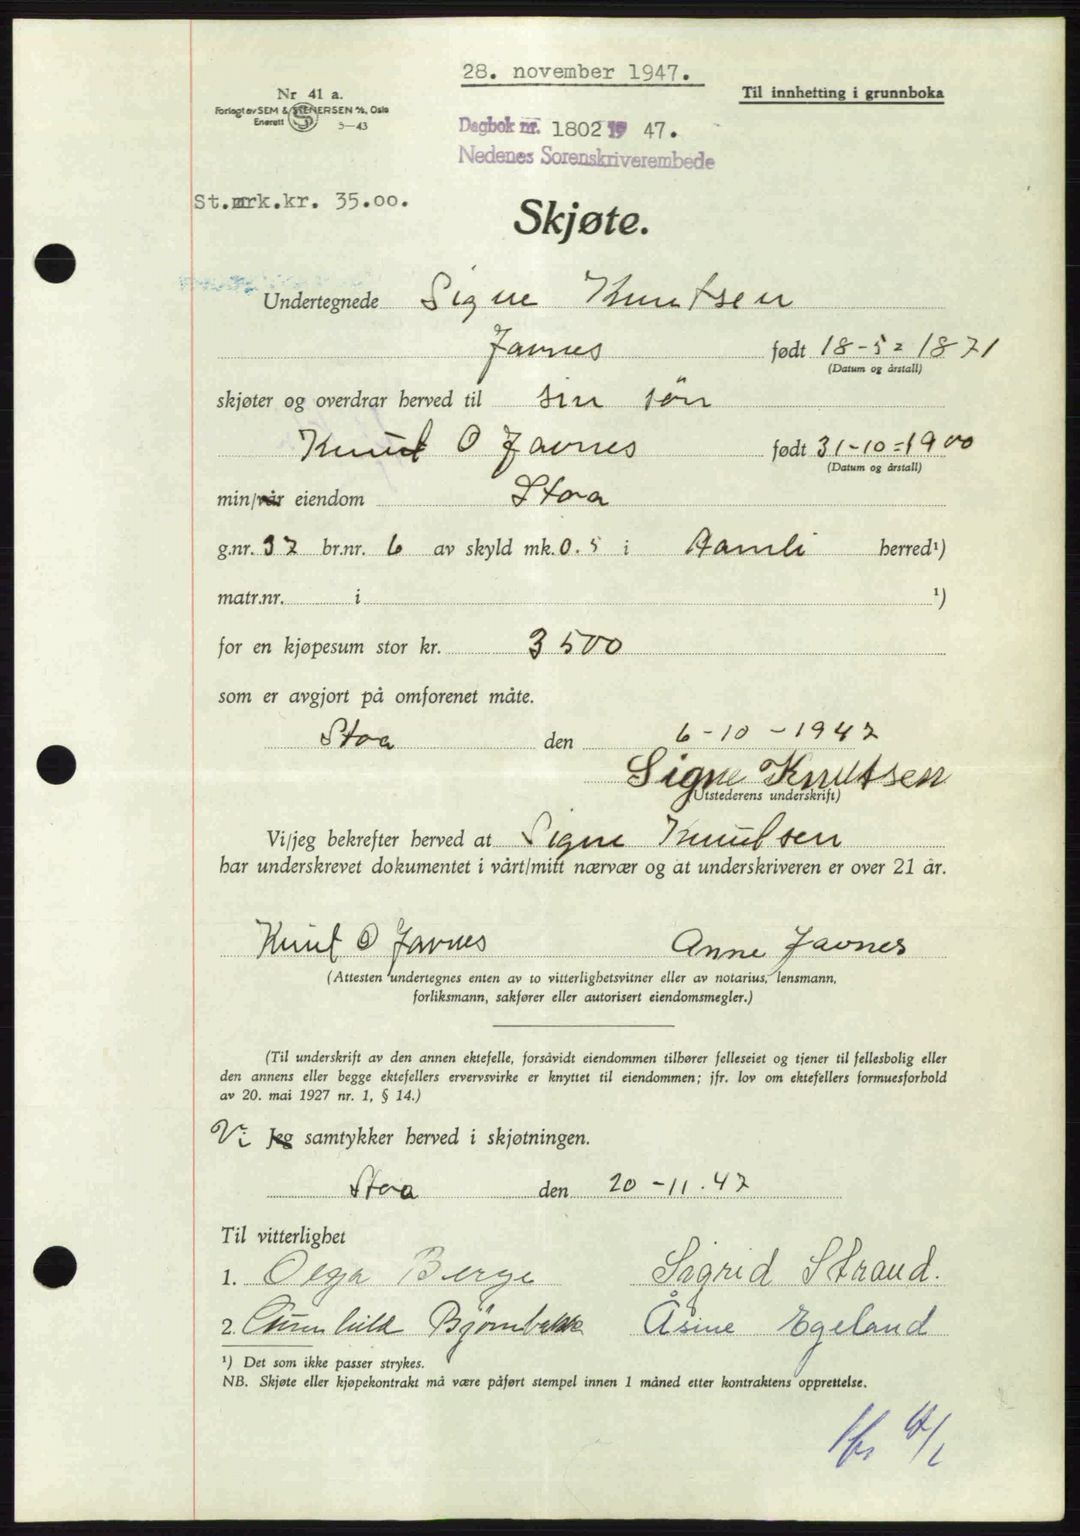 28. november 1947.
Nr 41 a.
Til innhefting i grunnboka
Forlagt av SEM & STENERSEN A/S, Oslo
Enerett 5—43
Dagbok nr. 1802 19 47.
Nedenes Sorenskriverembede
St.mrk.kr. 35.00.
Skjøte.
Undertegnede Signe Knutsen
Javnes født 18-5=1871
(Datum og årstall)
skjøter og overdrar herved til sin sön
Knut O Javnes født 31-10=1900
(Datum og årstall)
min/vår eiendom Stoa
g.nr. 37 br.nr. 6 av skyld mk. 0.5 i Aamli herred¹)
matr.nr. i ¹)
for en kjøpesum stor kr. 3500
som er avgjort på omforenet måte.
Stoa den 6-10-1947
Signe Knutsen
(Utstederens underskrift)
Vi/jeg bekrefter herved at Signe Knutsen
har underskrevet dokumentet i vårt/mitt nærvær og at underskriveren er over 21 år.
Knut O Javnes Anne Javnes
(Attesten undertegnes enten av to vitterlighetsvitner eller av notarius, lensmann,
forliksmann, sakfører eller autorisert eiendomsmegler.)
(Til underskrift av den annen ektefelle, forsåvidt eiendommen tilhører felleseiet og tjener til fellesbolig eller
den annens eller begge ektefellers ervervsvirke er knyttet til eiendommen; jfr. lov om ektefellers formuesforhold
av 20. mai 1927 nr. 1, § 14.)
Vi Jeg samtykker herved i skjøtningen.
Stoa den 20-11.47
Til vitterlighet
1. Olga Berge Sigrid Strand.
2. Gunhild Bjørnbekk Åsine Egeland
¹) Det som ikke passer strykes.
NB. Skjøte eller kjøpekontrakt må være påført stempel innen 1 måned etter kontraktens opprettelse.